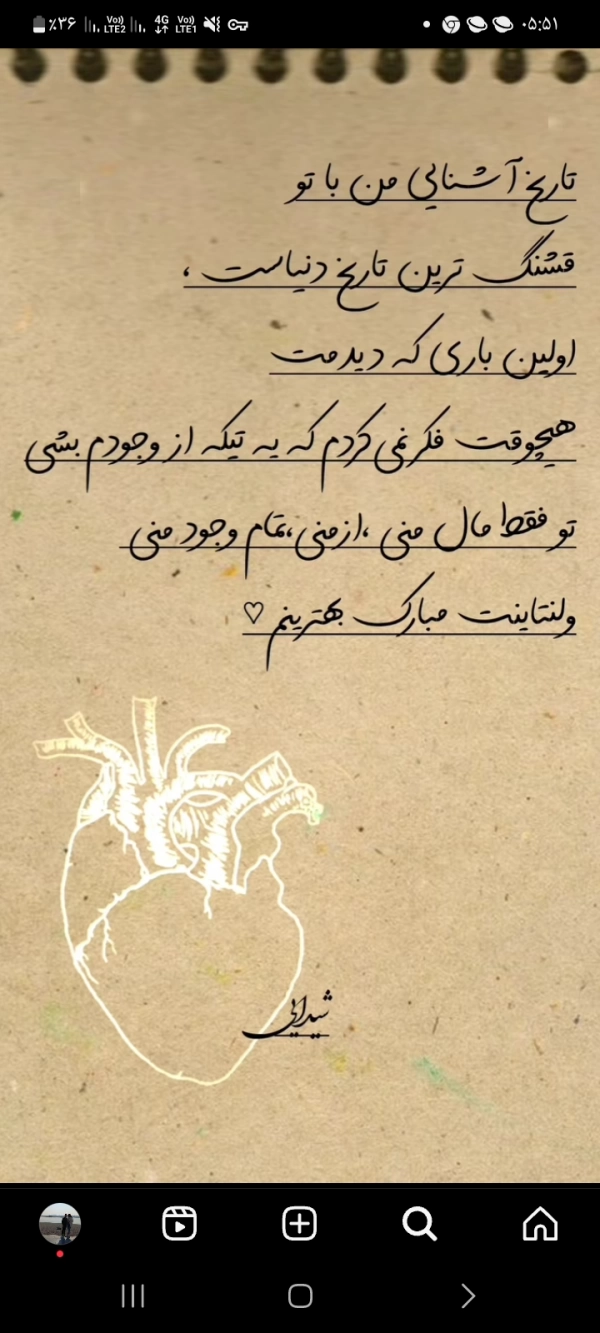 ٪۳۶ Vo)) LTE2 4G Vo)) LTE1 ۰۵:۵۱
تاریخ آشنایی من با تو
قشنگ ترین تاریخ دنیاست ،
اولین باری که دیدمت
هیچوقت فکر نمی کردم که یه تیکه از وجودم بشی
تو فقط مال منی ،ازمنی،تمام وجود منی
ولنتاینت مبارک بهترینم ♡
شیدایی